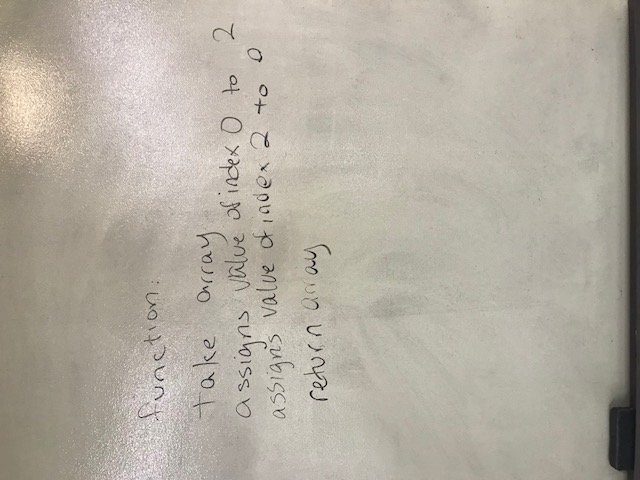 function:
take array
assigns value of index 0 to 2
assigns value of index 2 to 0
return array